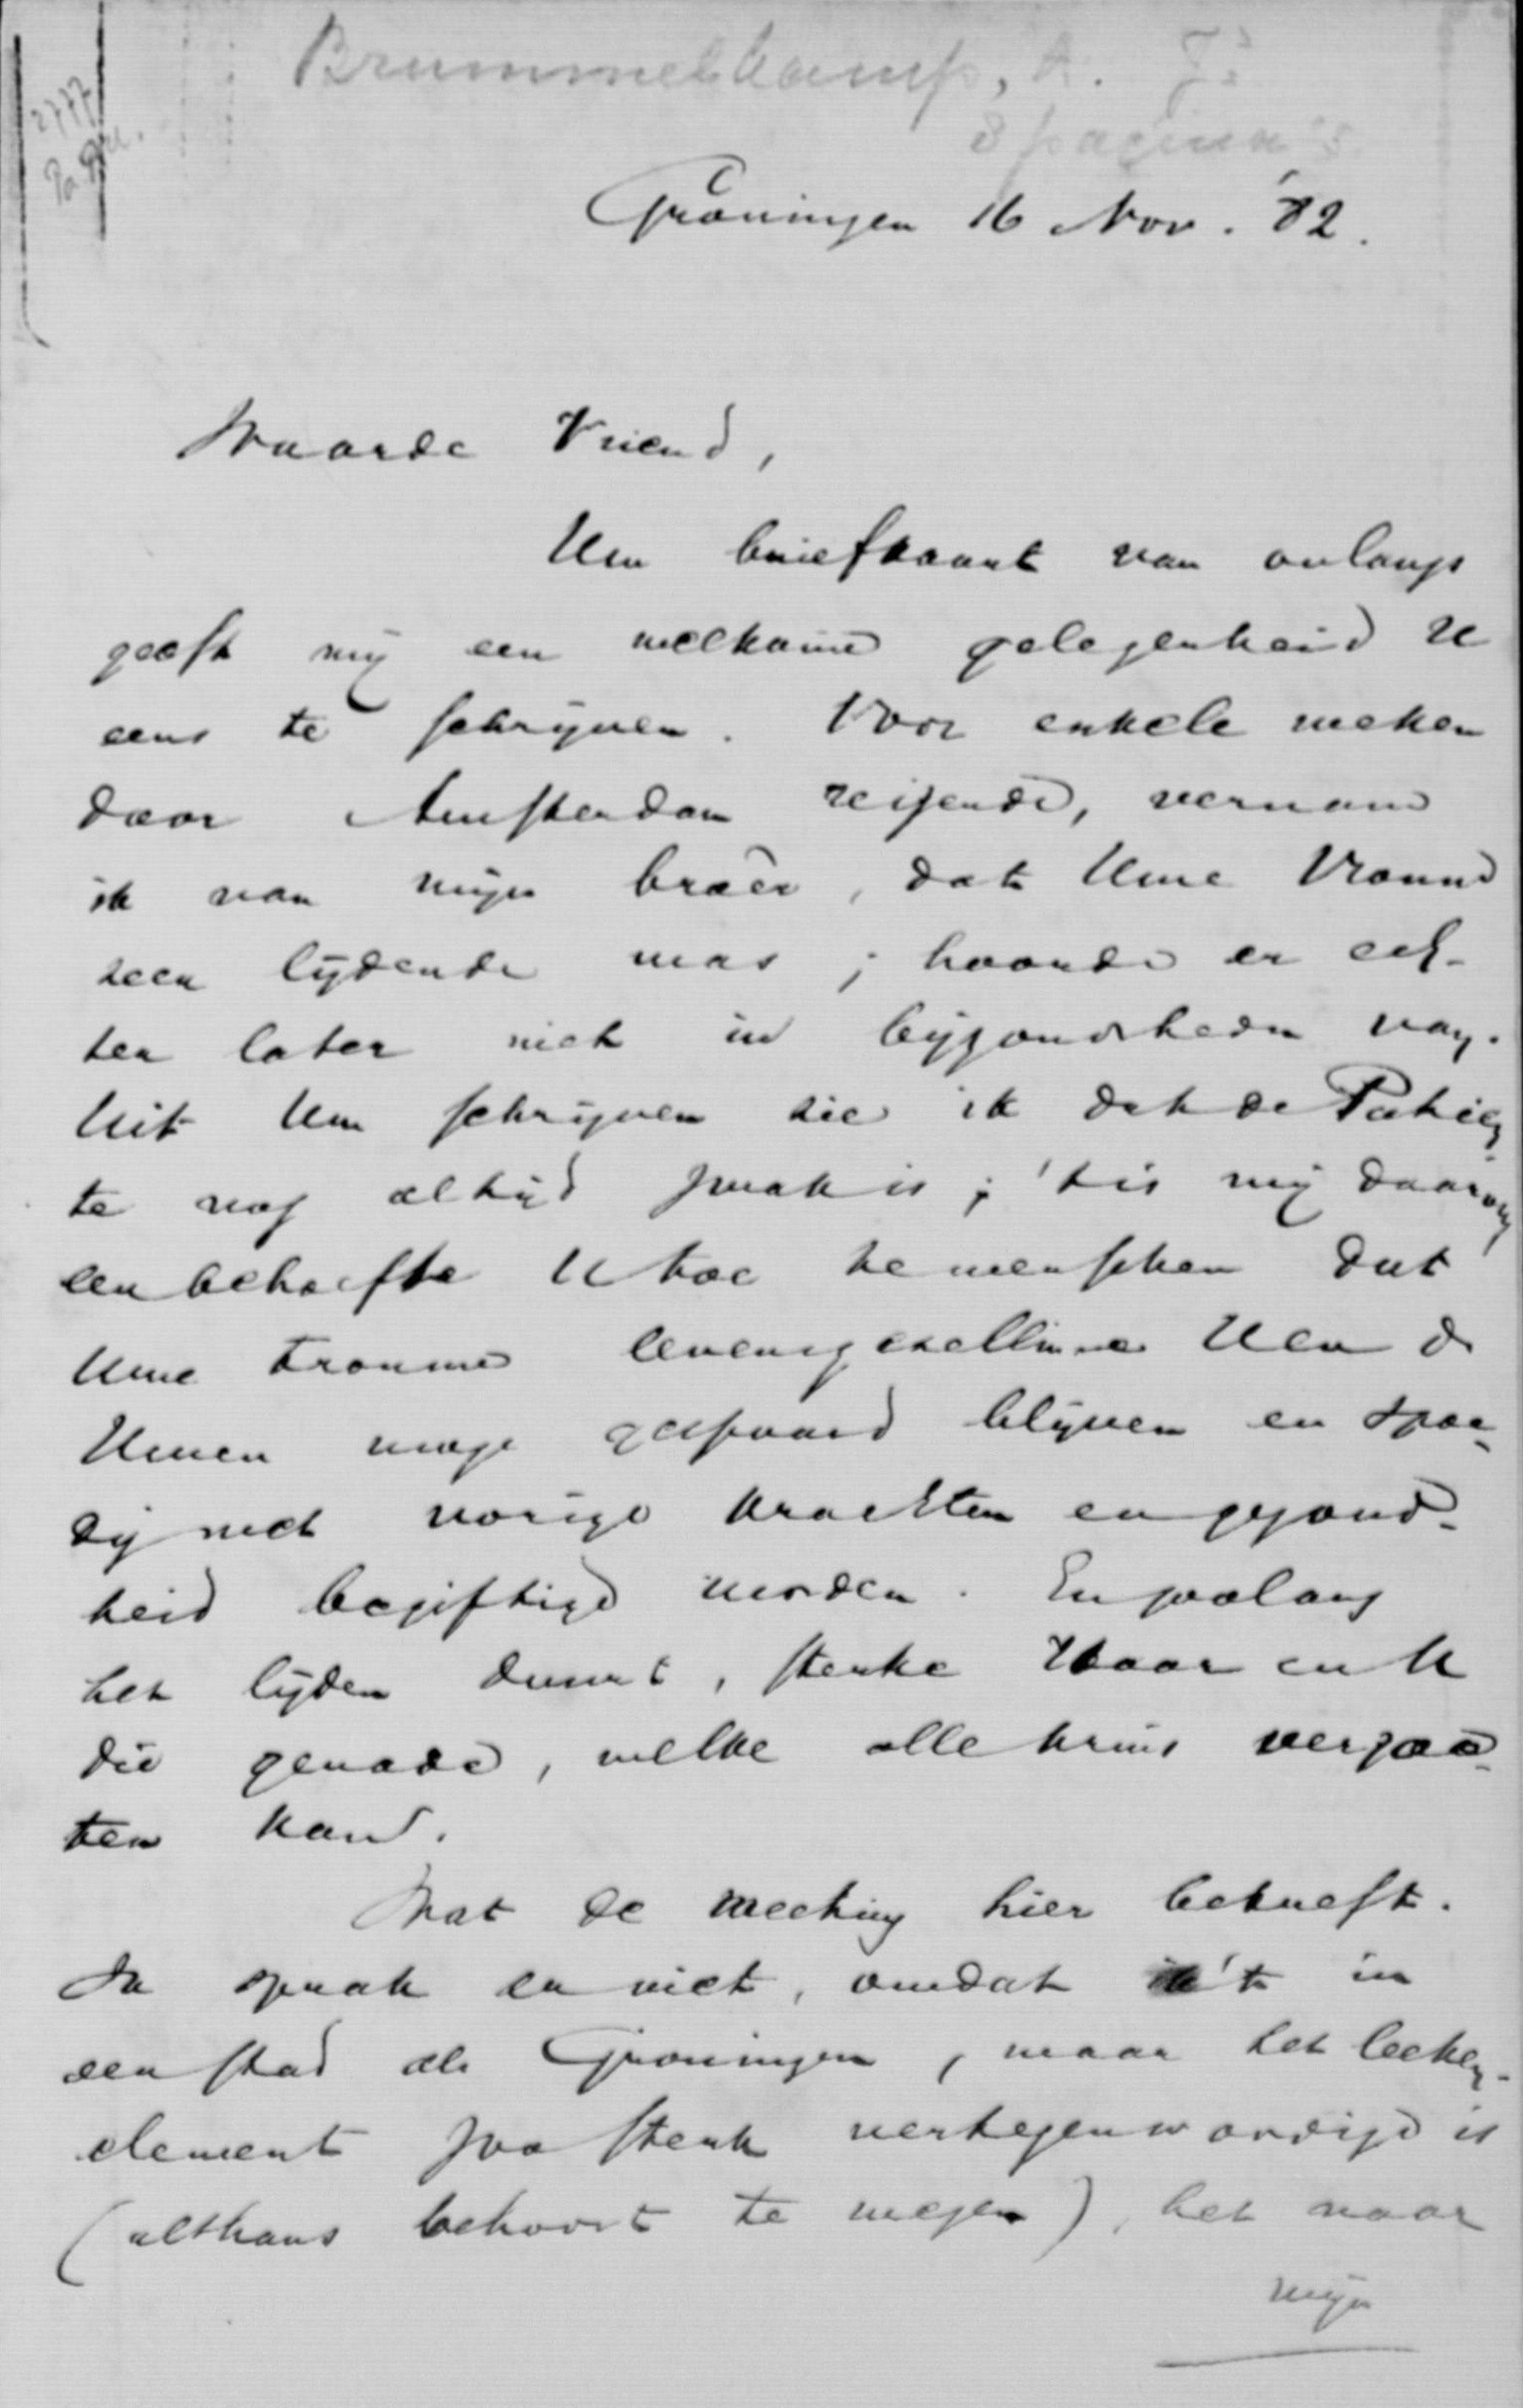 Brummelkamp, A. Jr
8 pagina's
2777
Groningen 16 Nov. '82.
Waarde Vriend,
Uw briefkaart van onlangs
geeft mij een welkome gelegenheid U
eens te schrijven. Voor enkele weken
door Amsterdam reizende, vernam
ik van mijn broer, dat Uwe Vrouw
zeer lijdende was; hoorde er ech-
ter later niet in bijzonderheden van.
Uit Uw schrijven zie ik dat de Patien-
te nog altijd zwak is; 't is mij daarom
een behoefte U toe te wenschen dat
Uwe trouwe levensgezellinne U en de
Uwen moge gespaard blijven en spoe-
dig met vorige krachten en gezond-
heid begiftigd worden. En zoolang
het lijden duurt, sterke Haar en U
die genade, welke alle kruis verzoe-
ten kan.
Wat de meeting hier betreft.
Ik sprak er niet, omdat ik 't in
een stad als Groningen, waar het leeken-
element zoo sterk vertegenwoordigd is
(althans behoort te wezen), het voor
mijn